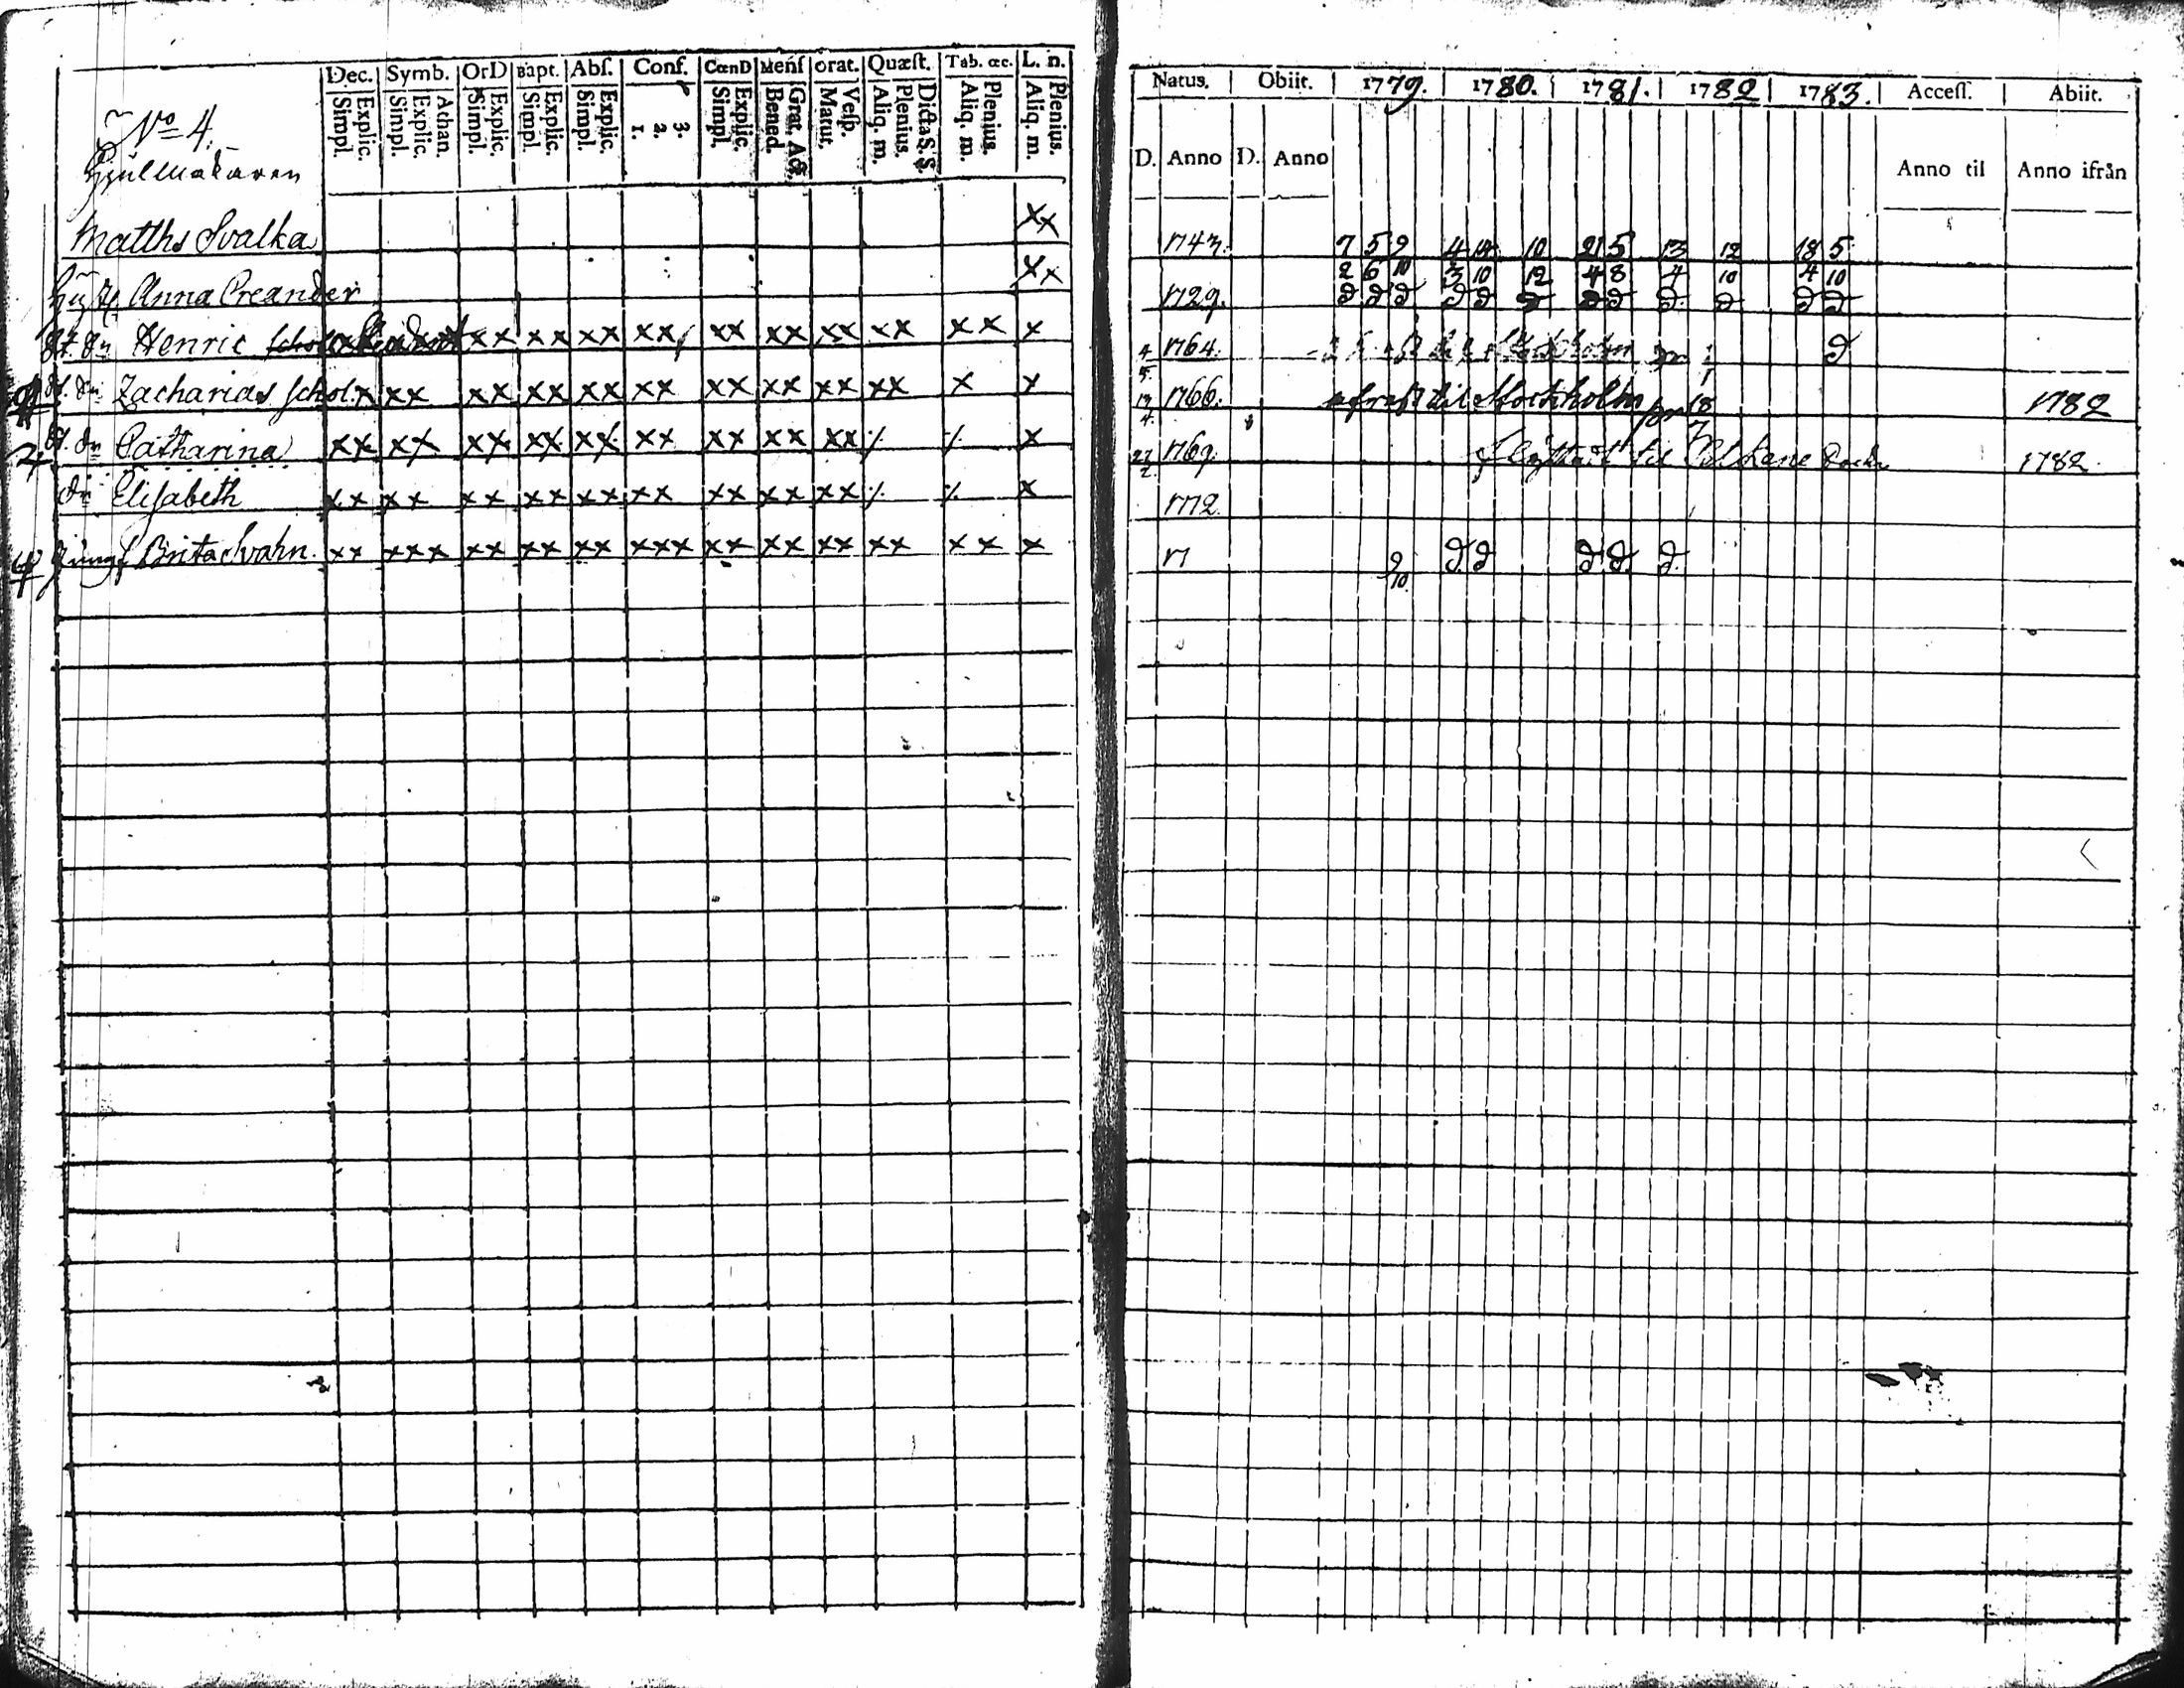 Dec. Symb. OrD Bapt. Abſ. Conf. CœnD Menſ orat. Quæſt. Tab. œc. L. n.
Simpl. Explic. Simpl. Explic. Athan. Simpl. Explic. Simpl. Explic. Simpl. Explic. 1. 2. 3. Simpl. Explic. Bened. Grat. A&. Matut. Veſp. Aliq. m. Plenius. Dicta S.S. Aliq. m. Plenius. Aliq. m. Plenius.
No 4.
Hjulmakaren
Matths Svalka xx
Hust. Anna Creander xx
St. Sn Henric xx xx xx xx xx xx xx xx xx x
St. Sn Zacharias schol. x xx xx xx xx xx xx xx xx xx x x
St. dr Catharina xx xx xx xx xx xx xx xx xx ⁒ ⁒ x
dr Elisabeth xx xx xx xx xx xx xx xx xx ⁒ ⁒ x
Jungf Brita Svahn. xx xxx xx xx xx xxx xx xx xx xx xx x
Natus. Obiit. 1779. 1780. 1781. 1782 1783. Acceſſ. Abiit.
D. Anno D. Anno Anno til Anno ifrån
1743. 7 5 9 4 10 10 21 5 13 12 18 5
2 6 10 3 10 12 4 8 4 10 4 10
1729.
1764. til Stockholm
1766. afrest til Stockholm 1782
22/2 1769. flyttadt til Pälkäne 1782.
1772.
17 9/10